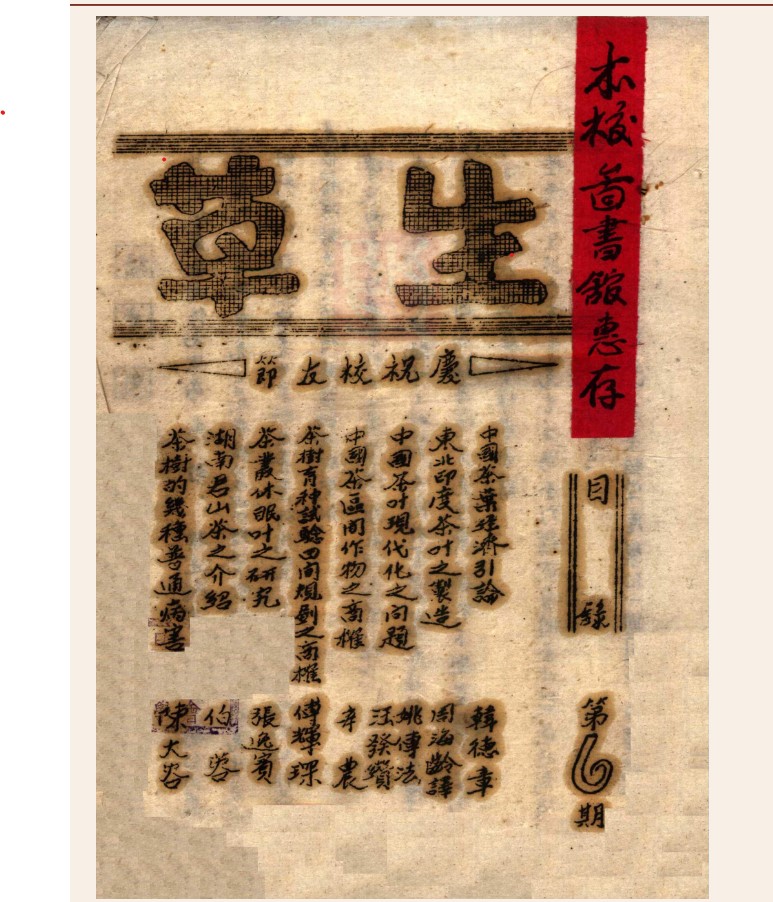 本校圖書舘惠存
生草
慶祝校友節
目錄
第6期
中國茶葉經濟引論 韓德章
東北印度茶叶之製造 周海齡譯
中國茶叶現代化之问題 姚傳法 汪發纘
中國茶區间作物之商榷 辛農
茶樹育种試驗田间規劃之商榷 傅輝琛
茶叢休眠叶之研究 張逸賓
湖南君山茶之介紹 伯蓉
茶樹的幾種普通病害 陳大容